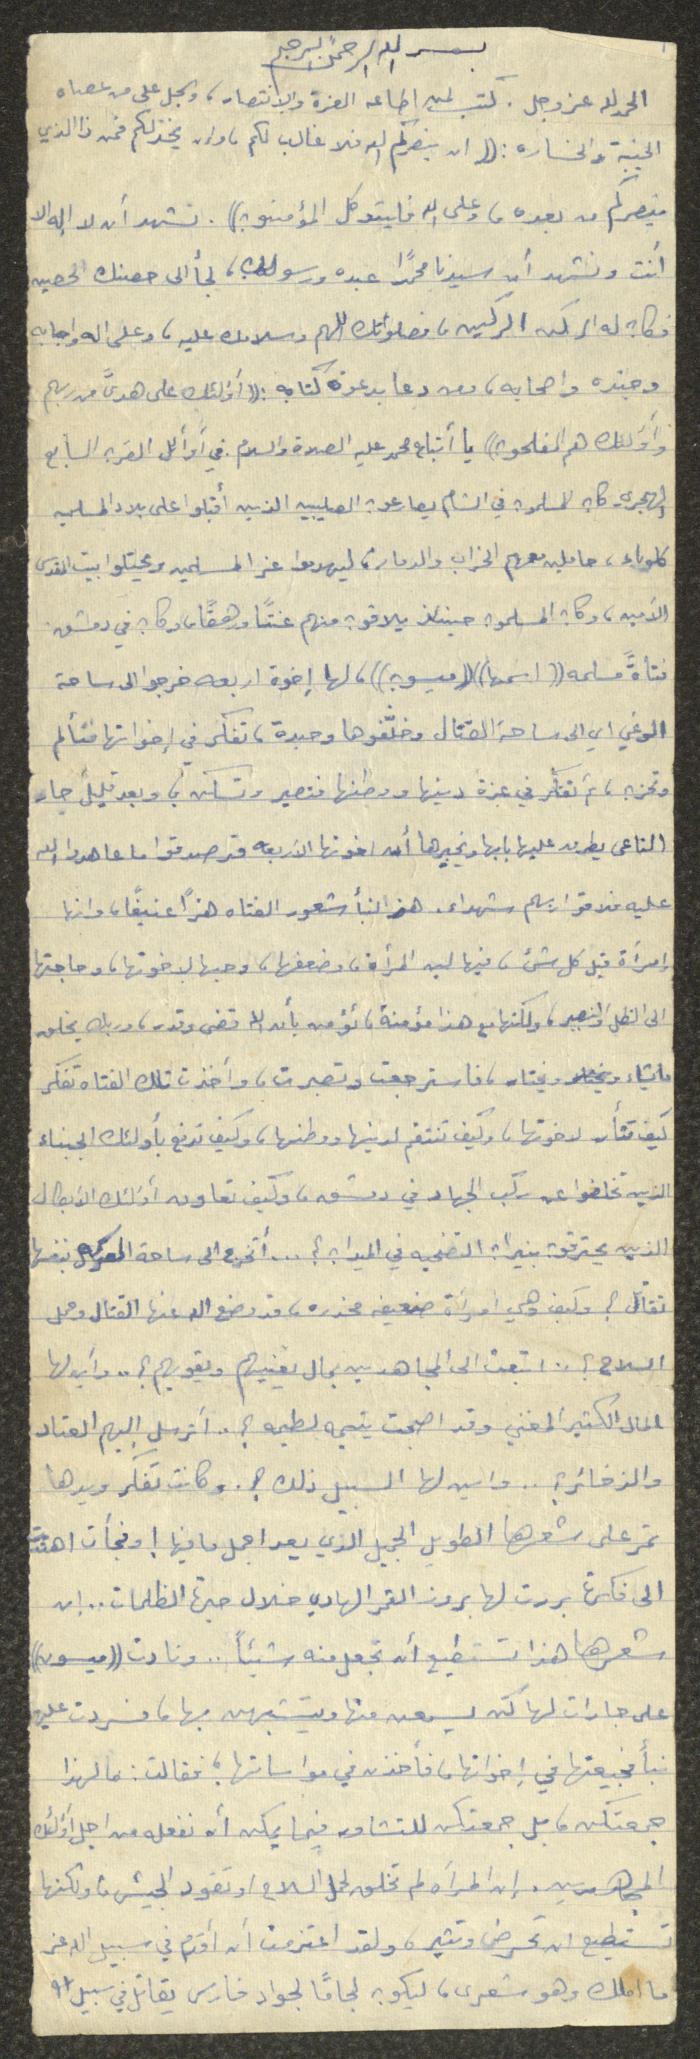 بسم الله الرحمن الرحيم
الحمد لله عز وجل . كتب لمن اطاعه العزة والانتصار ، وسجل على من عصاه
الخيبة والخساره : (( ان ينصركم الله فلا غالب لكم ، وان يخذلكم فمن ذا الذي
ينصركم من بعده ، وعلى الله فليتوكل المؤمنون )) . نشهد أن لا إله الا
أنت ونشهد أن سيدنا محمدًا عبده ورسولك ، لجأ الى حصنك الحصين
فكان له الركن الركين ، فصلواتك اللهم وسلامك عليه ، وعلى اله واحبابه
وجنده واصحابه ، ومن دعا بدعوة كتابه : (( أولئك على هدىً من ربهم
وأولئك هم المفلحون )) يا أتباع محمد عليه الصلاة والسلام . في أوائل القرن السابع
الهجري كان المسلمون في الشام يصارعون الصليبين الذين أقبلوا على بلاد المسلمين
كالوباء ، حاملين معهم الخراب والدمار ، ليهدموا عز المسلمين ويحتلوا بيت المقدس
الأمين ، وكان المسلمون حينئذ يلاقون منهم عنتًا ورهقًا ، وكان في دمشق
فتاةً مسلمه (( اسمها )) (( ميسون )) ، لها إخوة اربعه خرجوا الى ساحة
الوغي اي الى ساحة القتال وخلّفوها وحيدة ، تفكر في إخوانها فتألم
وتحزن ، ثم تفكر في عزة دينها ووطنها فتصبر وتسكن ، وبعد قليل جاء
الناعى يطرق عليها بابها ويخبرها أن اخوتها الاربعه قد صدقوا ما عاهدوا الله
عليه فلاقوا ربهم شهداء . هز النبأ شعور الفتاه هزًا عنيفًا ، وانها
إمرأة قبل كل شئ ، فيها لين المرأة ، وضعفها ، وحبها لاخوتها ، وحاجتها
الى الظل والنصير ، ولكنها مع هذا مؤمنة ، تؤمن بأن الله قضى وقدر ، وربك يخلق
ما يشاء ويختار ، فاسترجعت وتصبرت ، وأخذت تلك الفتاه تفكر
كيف تثأر لاخوتها ، وكيف تنتقم لدينها ووطنها ، وكيف تدفع بأولئك الجبناء
الذين تخلفوا عن ركب الجهاد في دمشق ، وكيف تعاون أولئك الأبطال
الذين يحترقون بنيران التضحيه في الميدان ؟ ... أتخرج الى ساحة المعركه بنفسها
تقاتل ؟ وكيف وهي امرأة ضعيفه مخدره ، قد وضع الله عنها القتال وحمل
السلاح ؟ .. اتبعث الى المجاهدين بمال يغنيهم ويقويهم ؟ .. واين لها
المال الكثير المغني وقد اصبحت يتيمه لطيمه ؟ .. أترسل إليهم العتاد
والذخائر ؟ .. واين لها السبيل ذلك ؟ . وكانت تفكر ويدها
تمر على شعرها الطويل الجميل الذي يعد اجمل ما فيها ! وفجأت اهتدت
الى فكرة برزت لها بروز القمر الهادي خلال حيرة الظلمات .. إن
شعرها هذا تستطيع أن تجعل منه شيئاً .. ونادت (( ميسون ))
على جارات لها كن يسمعن منها ويتشبهن بها ، فسردت عليهن
نبأ فجيعتها في إخوانها ، فأخذن في مواساتها ، فقالت : ما لهذا
جمعتكن ، بل جمعتكن للتشاور فيما يمكن أن نفعله من اجل أولئك
المجاهدين . إن المرأه لم تخلق لحمل السلاح او تقود الجيش ، ولكنها
تستطيع ان تحرض وتثير ، ولقد اعتزمت أن أقدم في سبيل الله عز
ما املك وهو شعرى ، ليكون لجامًا لجواد فارس يقاتل في سبيل الله